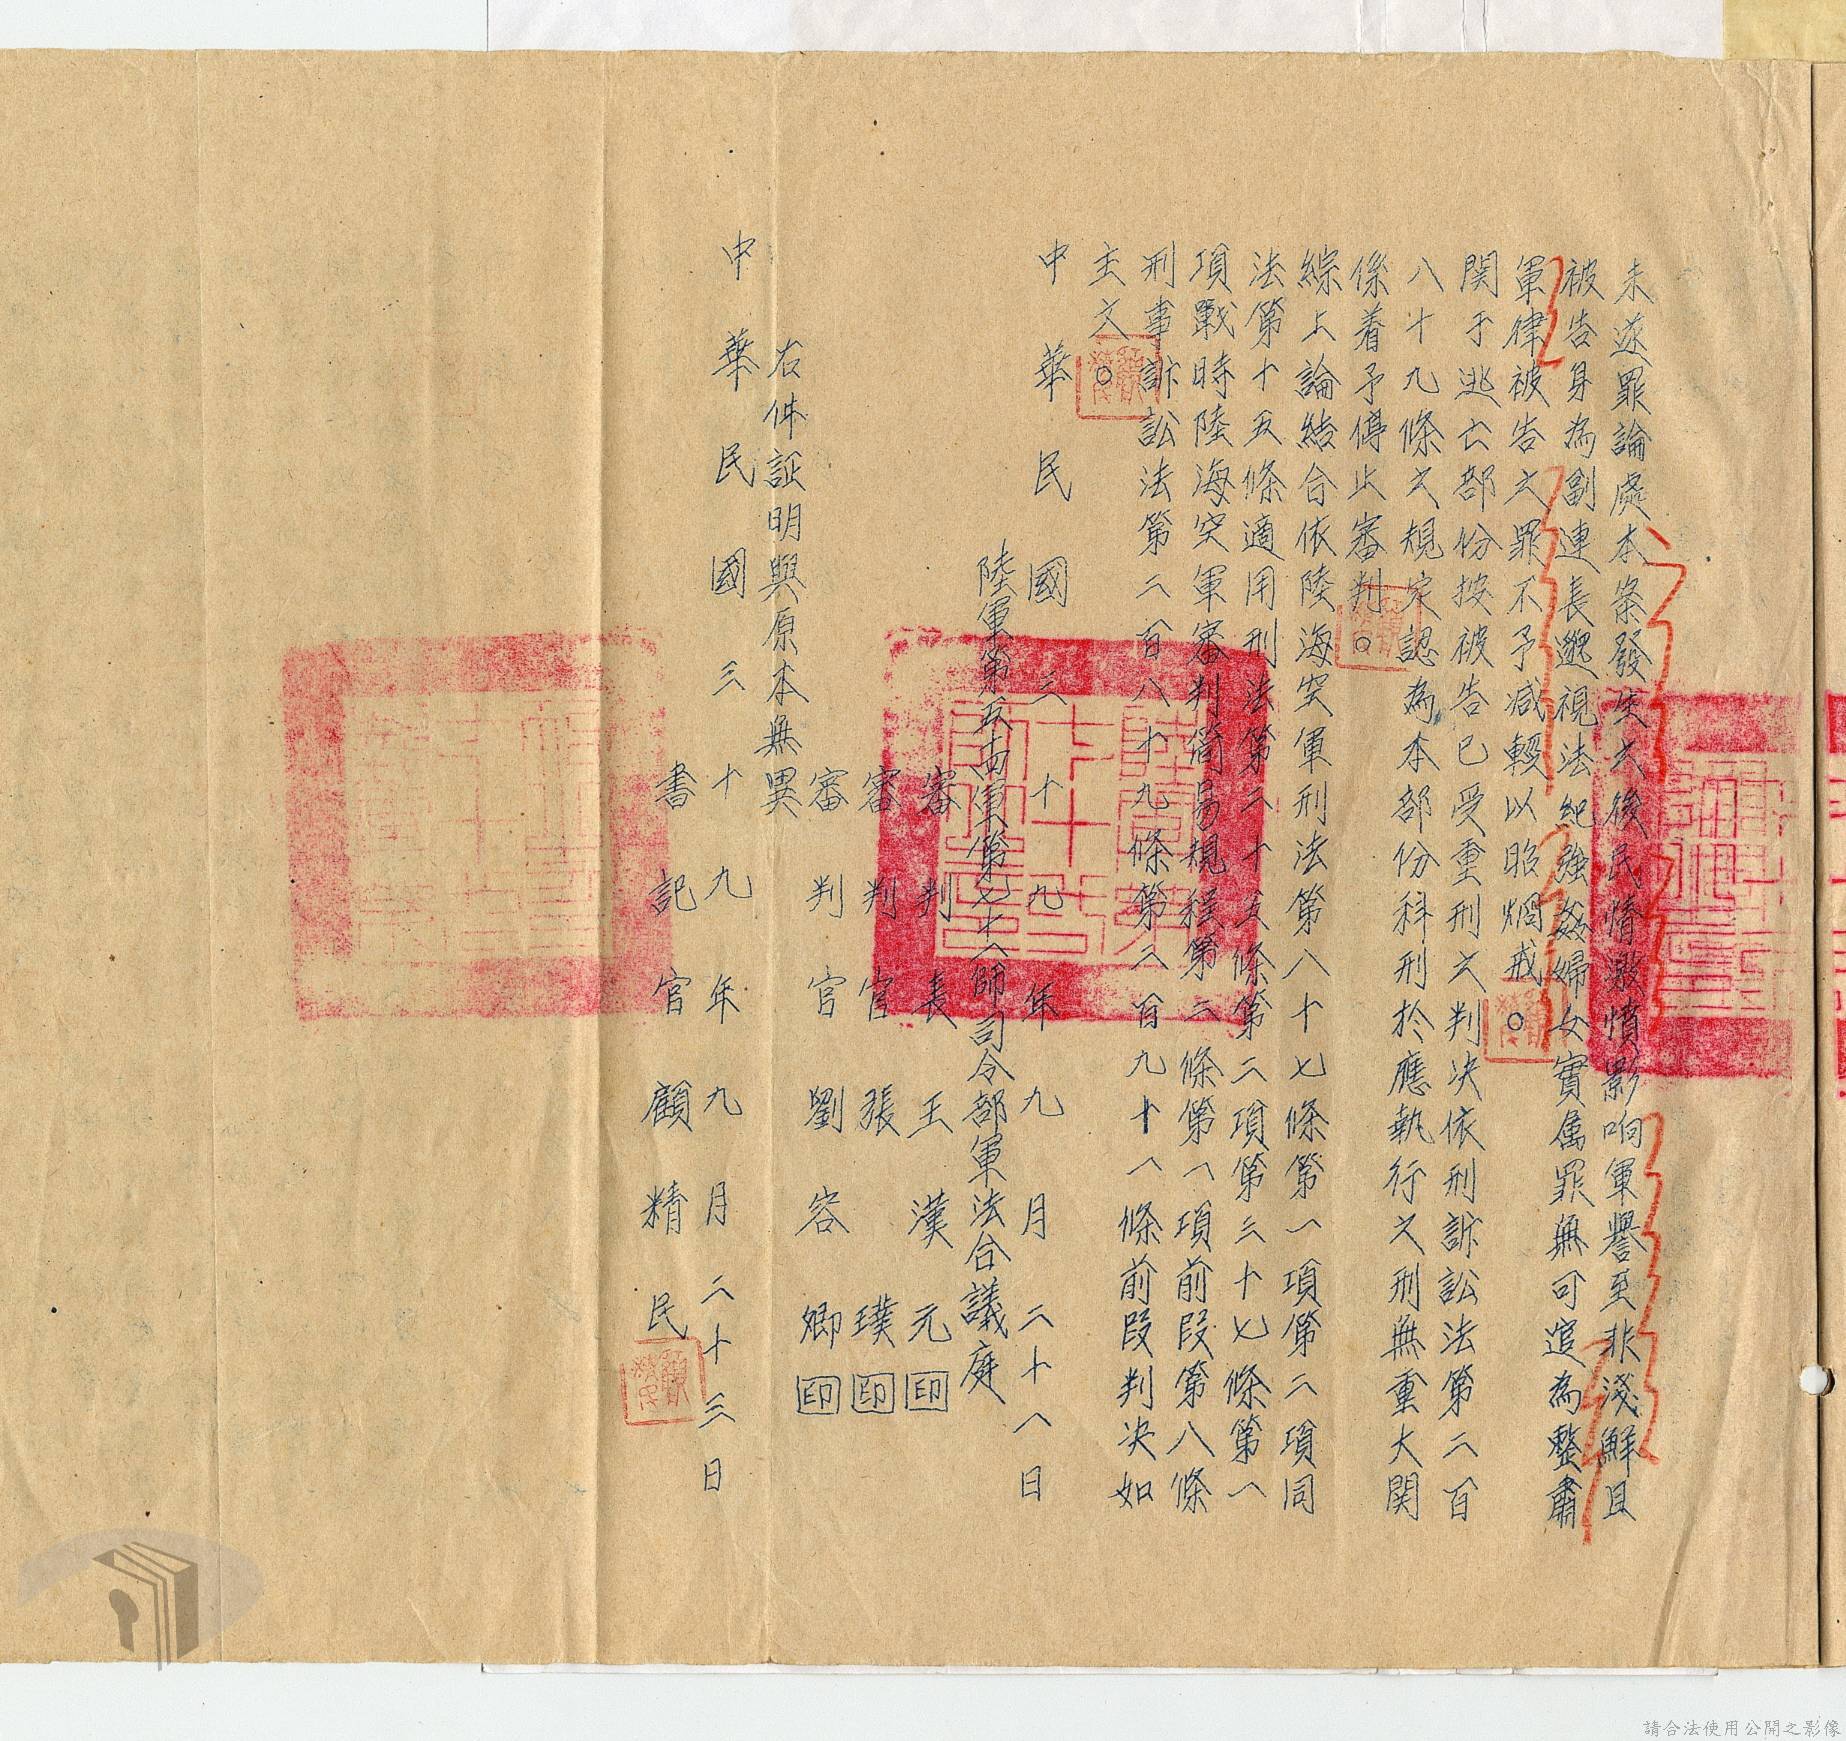 未遂罪論處本案發生之後民情激憤影响軍譽至非淺鮮且
被告身為副連長邈視法紀強姦婦女實屬罪無可逭為整肅
軍律被告之罪不予減輕以昭烱戒。
関于逃亡部份按被告已受重刑之判决依刑訴訟法第二百
八十九條之規定認為本部份科刑於應執行之刑無重大関
係着予停止審判。
綜上論結合依陸海空軍刑法第八十七條第一項第二項同
法第十五條適用刑法第二十五條第二項第三十七條第一
項戰時陸海空軍審判簡易規程第二條第一項前段第八條
刑事訴訟法第二百八十九條第二百九十一條前段判决如
主文。
中華民國三十九年九月二十八日
陸軍第五十四軍第七十一師司令部軍法合議庭
審判長王漢元印
審判官張璞印
審判官劉容卿印
右件証明與原本無異
中華民國三十九年九月二十三日
書記官顧精民
請合法使用公開之影像